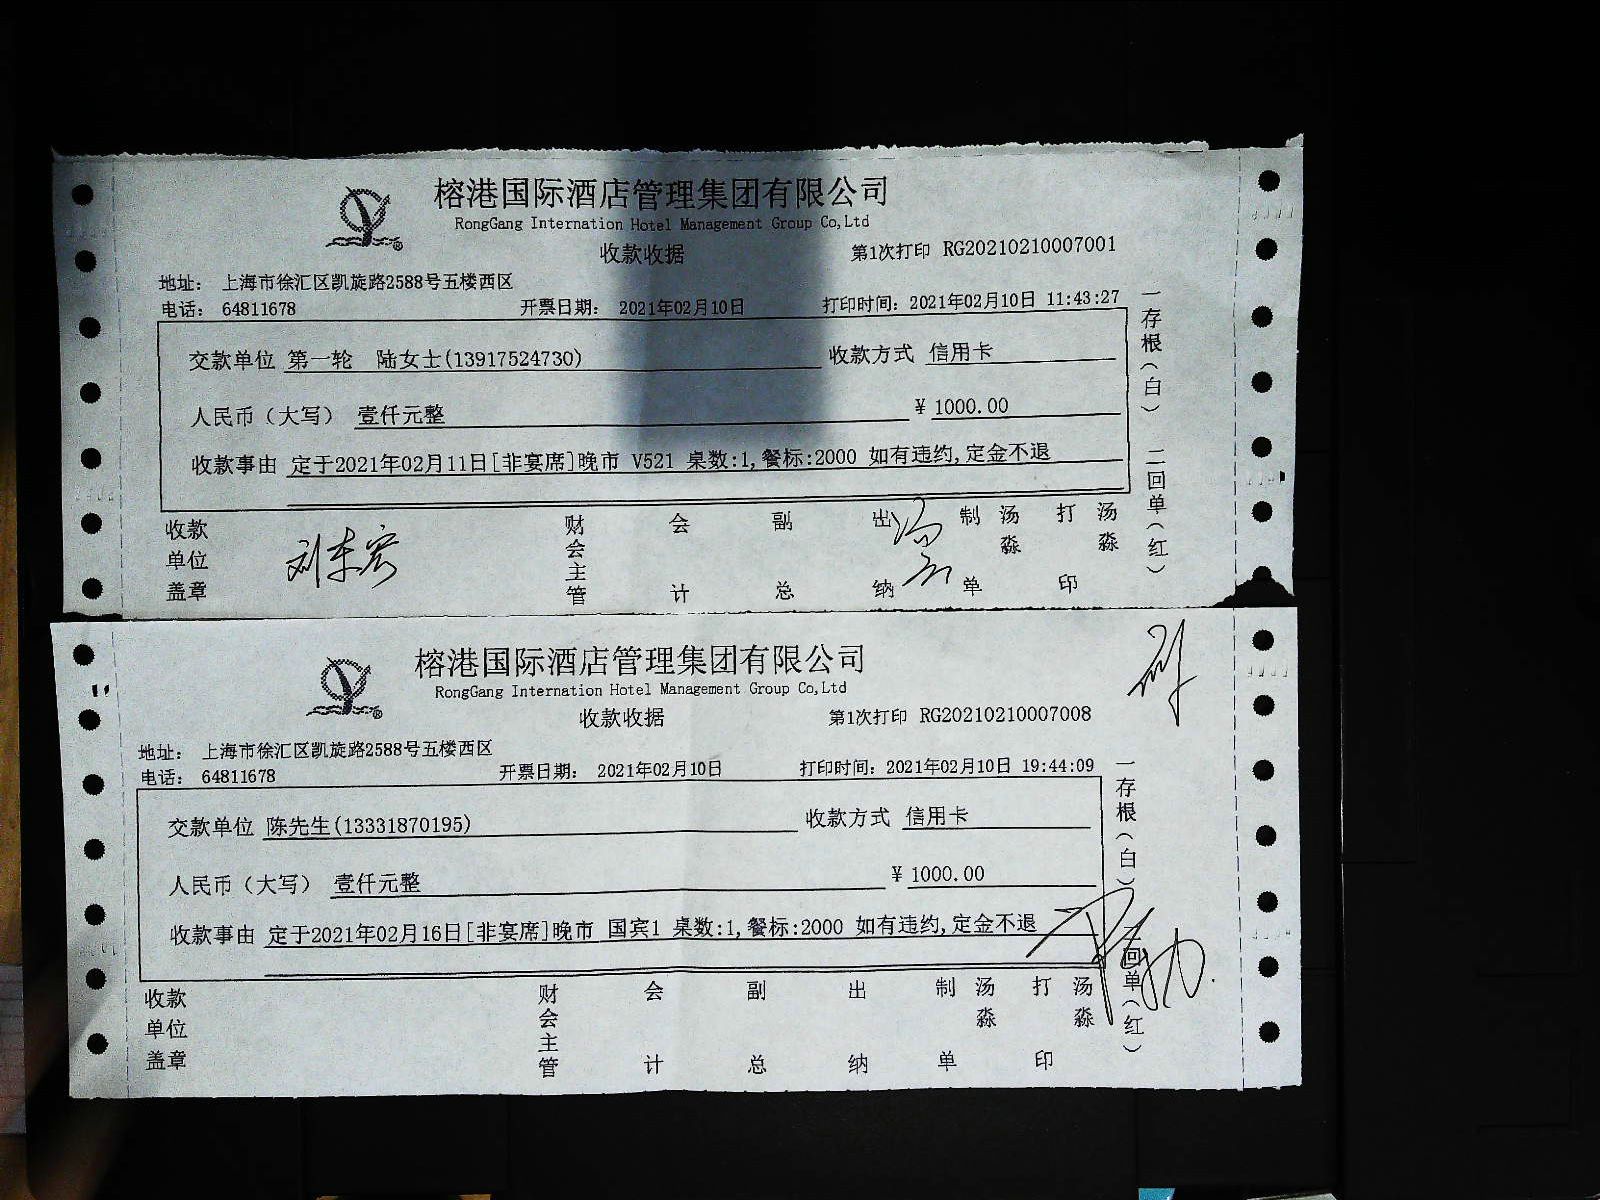 榕港国际酒店管理集团有限公司
RongGang Internation Hotel Management Group Co,Ltd
收款收据 第1次打印 RG20210210007001
地址： 上海市徐汇区凯旋路2588号五楼西区
电话： 64811678 开票日期： 2021年02月10日 打印时间：2021年02月10日 11:43:27
交款单位 第一轮 陆女士(13917524730) 收款方式 信用卡
人民币（大写） 壹仟元整 ¥ 1000.00
收款事由 定于2021年02月11日[非宴席]晚市 V521 桌数:1,餐标:2000 如有违约,定金不退
一存根（白） 二回单（红）
收款单位盖章 财会主管 会计 副总 出纳 制单 汤淼 打印 汤淼
榕港国际酒店管理集团有限公司
RongGang Internation Hotel Management Group Co,Ltd
收款收据 第1次打印 RG20210210007008
地址： 上海市徐汇区凯旋路2588号五楼西区
电话： 64811678 开票日期： 2021年02月10日 打印时间：2021年02月10日 19:44:09
交款单位 陈先生(13331870195) 收款方式 信用卡
人民币（大写） 壹仟元整 ¥ 1000.00
收款事由 定于2021年02月16日[非宴席]晚市 国宾1 桌数:1,餐标:2000 如有违约,定金不退
一存根（白） 二回单（红）
收款单位盖章 财会主管 会计 副总 出纳 制单 汤淼 打印 汤淼